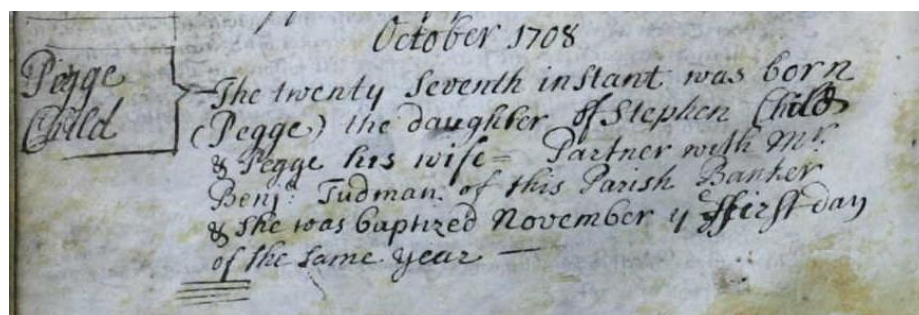 October 1708
Pegge
Child
The twenty Seventh instant was born
(Pegge) the daughter of Stephen Child
& Pegge his wife = Partner with Mr.
Benj: Tudman of this Parish Banker
& she was baptized November y ffirst day
of the same year —